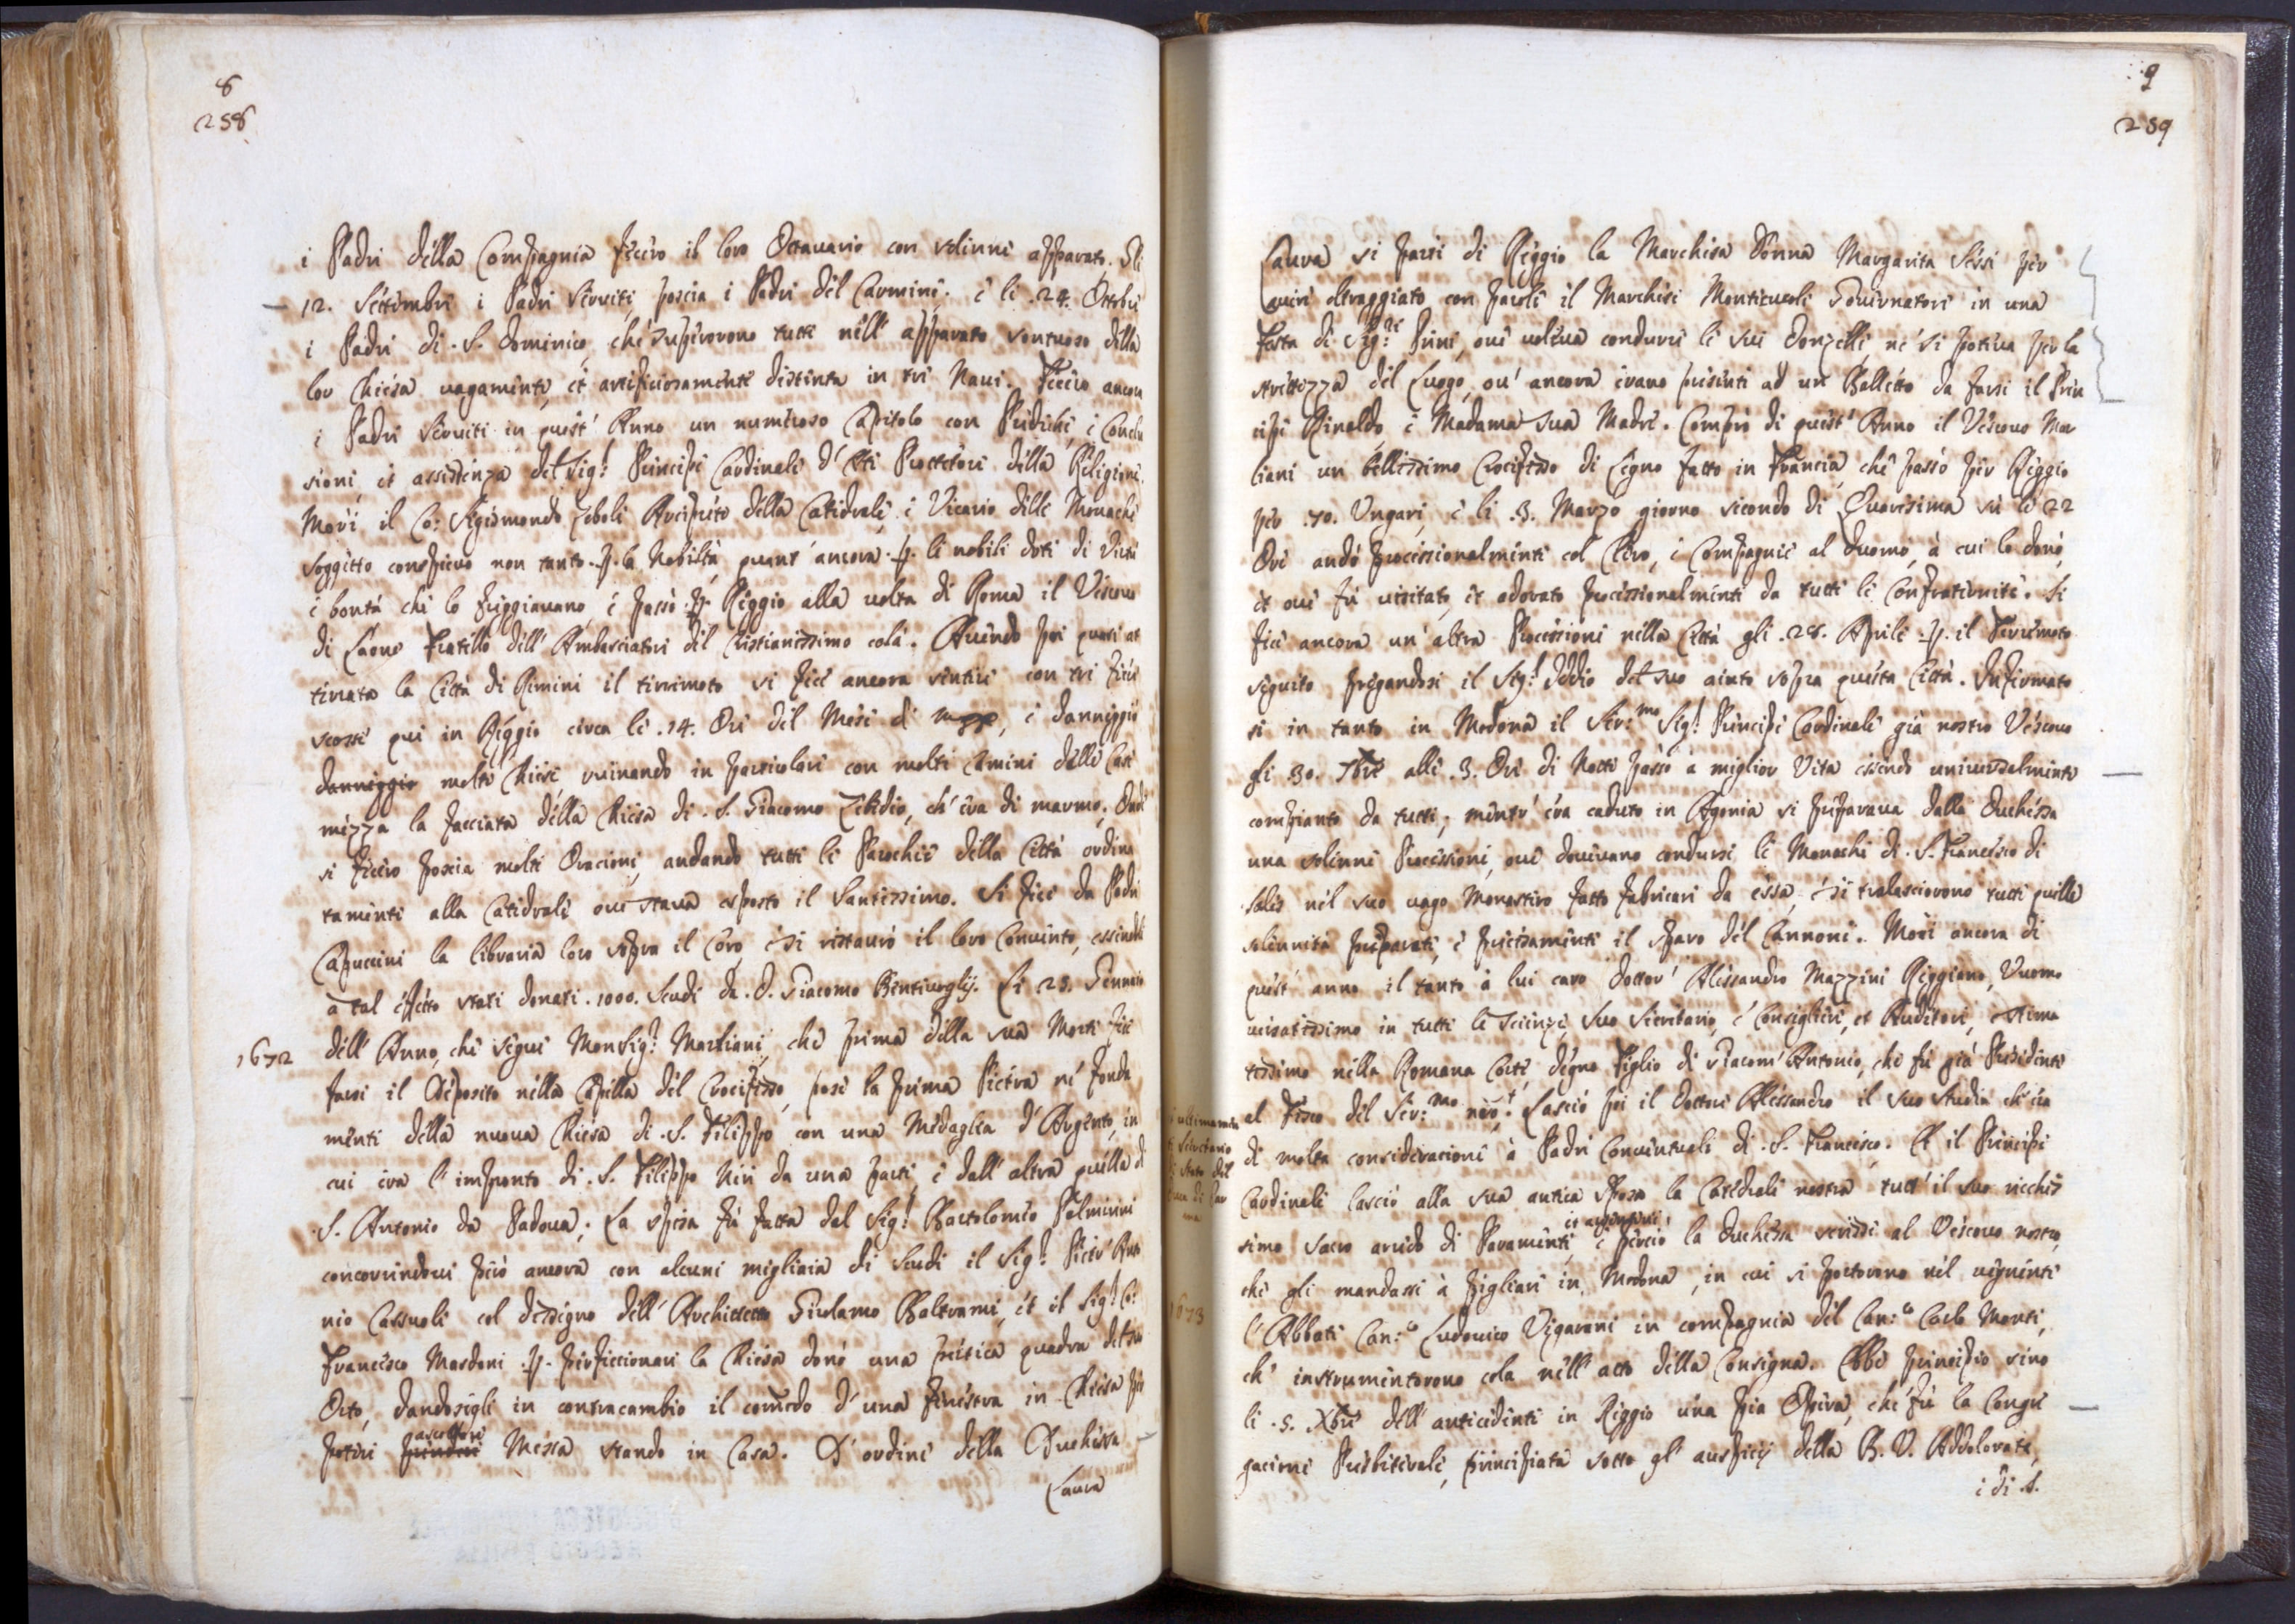 8
258
i Padri della Compagnia fecero il loro Ottauario con solenne apparato. Li
12. Settembre i Padri Seruiti, poscia i Padri del Carmine. è li .24. Ottobre
i Padri di .S. Domenico, che superorono tutti nell' apparato sontuoso della
lor Chiesa uagamente, et artificiosamente distinta in tre Naui. Fecero ancora
i Padri Seruiti in quest' Anno un numeroso Capitolo con Prediche, e Conclu
sioni, et assistenza del Sig.r Principe Cardinale d' Este Protettore della Religione.
Morì il Co: Sigismondo Zoboli Arciprete della Catedrale, e Vicario delle Monache
soggetto conspicuo non tanto .p. la Nobiltà quant' ancora .p. le nobili doti di Virtù
è bontà che lo freggiauano, è passò .p. Reggio alla uolta di Roma il Vescouo
di Laone Fratello dell' Ambasciatore del Cristianissimo colà. Auendo poi quasi at
terrata la Città di Rimini il terremoto si fece ancora sentire con tre fiere
scosse qui in Reggio circa le .14. Ore del Mese di , è danneggiò
danneggiò molte Chiese ruinando in particolare con molti Camini delle Case
mezza la facciata della Chiesa di .S. Giacomo Zibedio, ch' era di marmo; Onde
si fecero poscia molte Orazioni, andando tutte le Parochie della Città ordina
tamente alla Catedrale oue staua esposto il Santissimo. Si fece da Padri
Capuccini la libraria loro sopra il Coro, è si ristaurò il loro Conuento, essendoli
à tal effetto stati donati .1000. Scudi da .D. Giacomo Bentiuoglij. Li 25. Gennaio
1672 dell' Anno, che seguì MonSig.r Marliani, che prima della sua Morte fece
farsi il Deposito nella Capella del Crocifisso, pose la prima Pietra ne' fonda
menti della nuoua Chiesa di .S. Filippo con una Medaglia d' Argento, in
cui era l' impronto di .S. Filippo Neri da una parte, è dall' altra quella di
.S. Antonio da Padoua; La spesa fù fatta dal Sig.r Bartolomeo Palmieri
concorrendoui però ancora con alcuni migliaia di Scudi il Sig.r Pietr' Anto
nio Cassuoli col dessegno dell' Architetto Girolamo Beltrami, et il Sig.r Co:
Francesco Mardoni .p. perfeccionare la Chiesa donò una pertica quadra del suo
Orto, dandosegli in contracambio il comodo d' una finestra in Chiesa per
ascoltare
poter prendere Messa stando in Casa. D' ordine della Duchessa
Laura
9
259
Laura si partì di Reggio la Marchesa Donna Margarita Sessi per
auere oltraggiato con parole il Marchese Montecucoli Gouernatore in una
Festa di Sig.re Prini, oue uoleua condurre le sue Donzelle, ne si poteua per la
strettezza del Luogo, ou' ancora erano presenti ad un Balletto da farsi il Prin
cipe Rinaldo, è Madama sua Madre. Comprò di quest' Anno il Vescouo Mar
liani un bellissimo Crocifisso di Legno fatto in Francia, che passò per Reggio
per .70. Ungari, è li .3. Marzo giorno secondo di Quaresima sù le 22
Ore andò processionalmente col Clero, e Compagnie al Duomo, à cui lo donò,
et oue fù uisitato, et adorato processionalmente da tutte le Confraternite. Si
fece ancora un' altra Processione nella Città gli .28. Aprile .p. il Terremoto
seguito pregandosi il Sig.r Iddio del suo aiuto sopra questa Città. Infermato
si in tanto in Modona il Ser:mo Sig.r Principe Cardinale già nostro Vescouo
gli 30. 7bre alle .3. Ore di Notte passò a miglior Vita essendo uniuersalmente
compianto da tutti; mentr' era caduto in Agonia si preparaua dalla Duchessa
una solenne Processione, oue doueuano condursi le Monache di .S. Francesco di
Sales nel suo uago Monastero fatto fabricare da essa, è si tralasciorono tutte quelle
solennità preparate, è precisamente il sparo del Cannone. Morì ancora di
quest' anno il tanto à lui caro Dottor' Alessandro Mazzini Reggiano, Vuomo
uersatissimo in tutte le Scienze, suo Secretario, è Consigliere, et Auditore, stima
tissimo nella Romana Corte, degno Figlio di Giacom' Antonio, che fù già Presidente
al Fisco del Ser:mo nro. Lasciò poi il Dottore Alessandro il suo Studio ch' era
ultimamen
te Secretario
di Stato del
Duca di Par
ma
di molta consideracione à Padri Conuentuali di .S. Francesco. Et il Principe
Cardinale lasciò alla sua antica Sposa la Catedrale nostra tutt' il suo ricchis
et argenterie
simo Sacro aredo di Paramenti, è perciò la Duchessa scrisse al Vescouo nostro,
che gli mandasse à pigliare in Modona, in cui si portorono nel uegnente
1673
l' Abbate Can:co Ludouico Vigarani in compagnia del Can:co Carlo Monti,
ch' instrumentorono cola nell' atto della Consegna. Ebbe principio sino
li .5. Xbre dell' antecedente in Reggio una pia Opera, che fù la Congre
gacione Presbiterale, principiata sotto gl' auspicij della B. V. Addolorata,
è di .S.